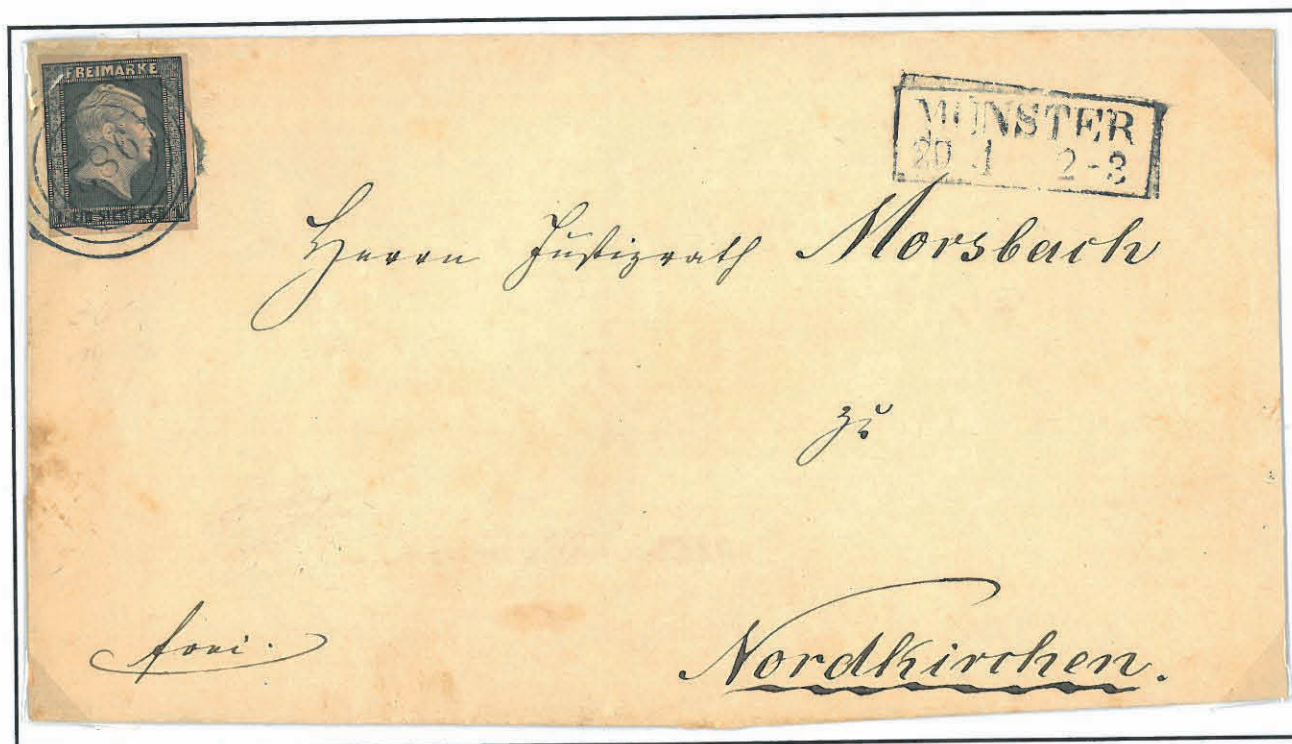 FREIMARKE
986
MÜNSTER
20 1 2-3
Herrn Justizrath Morsbach
zu
frei.
Nordkirchen.